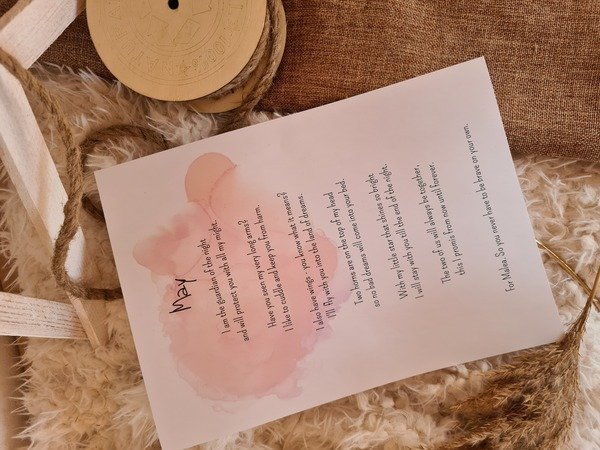 May
I am the guardian of the night
and will protect you with all my might.
Have you seen my very long arms?
I like to cuddle and keep you from harm.
I also have wings - you know what it means?
I'll fly with you into the land of dreams.
Two horns are on the top of my head
so no bad dreams will come into your bed.
With my little star that shines so bright,
I will stay with you till the end of the night.
The two of us will always be together,
this I promis from now until forever.
for Malea. So you never have to be brave on your own.
100%